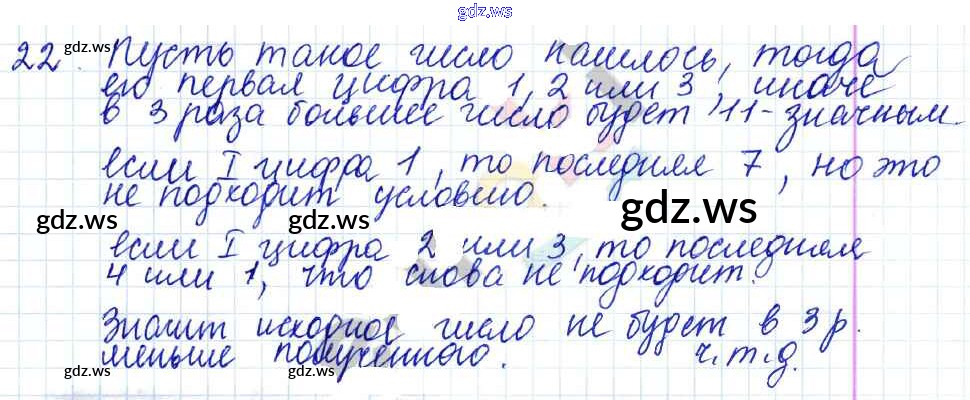 gdz.ws
22. Пусть такое число нашлось, тогда
gdz.ws gdz.ws
его первая цифра 1, 2 или 3, иначе
в 3 раза большее число будет 11-значным.
если I цифра 1, то последняя 7, но это
не подходит условию.
gdz.ws gdz.ws gdz.ws
если I цифра 2 или 3, то последняя
4 или 1, что снова не подходит.
Значит исходное число не будет в 3 р.
меньше полученного. ч.т.д.
gdz.ws gdz.ws